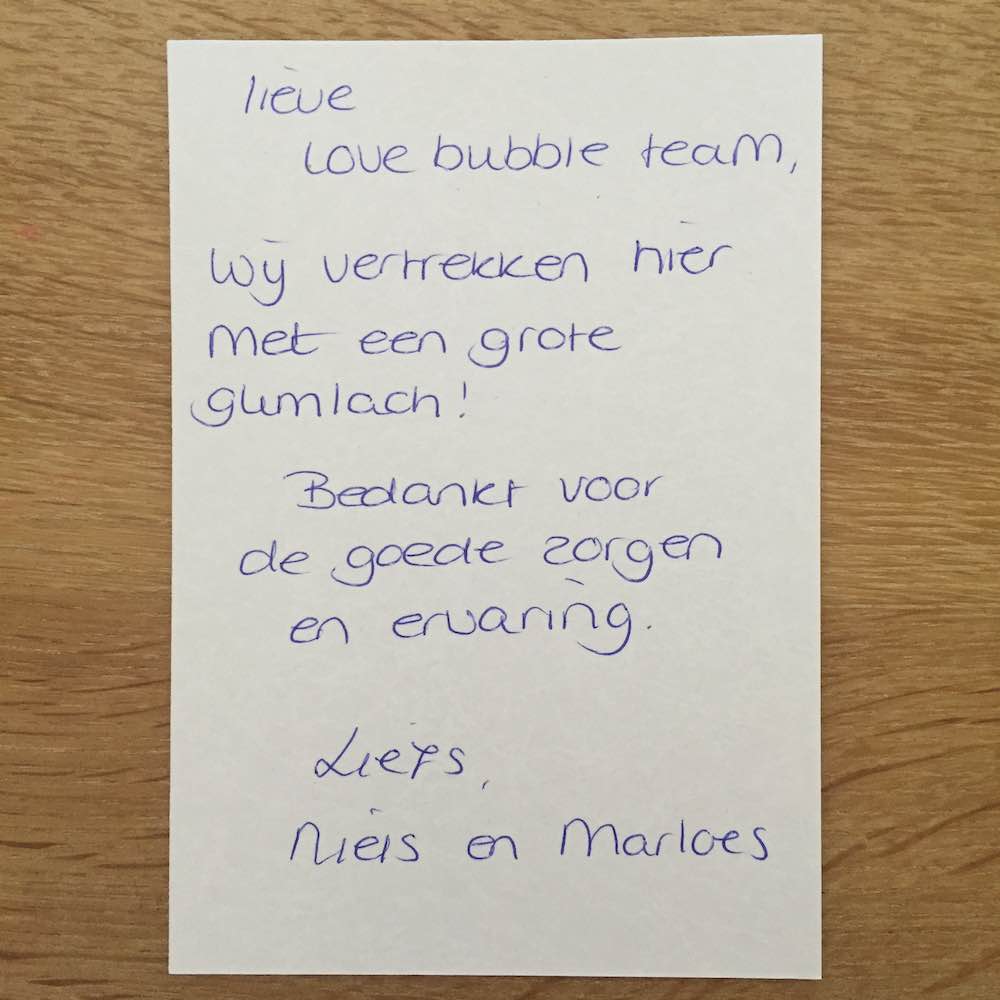 lieve
Love bubble team,
Wij vertrekken hier
met een grote
glimlach!
Bedankt voor
de goede zorgen
en ervaring.
Liefs,
Niels en Marloes